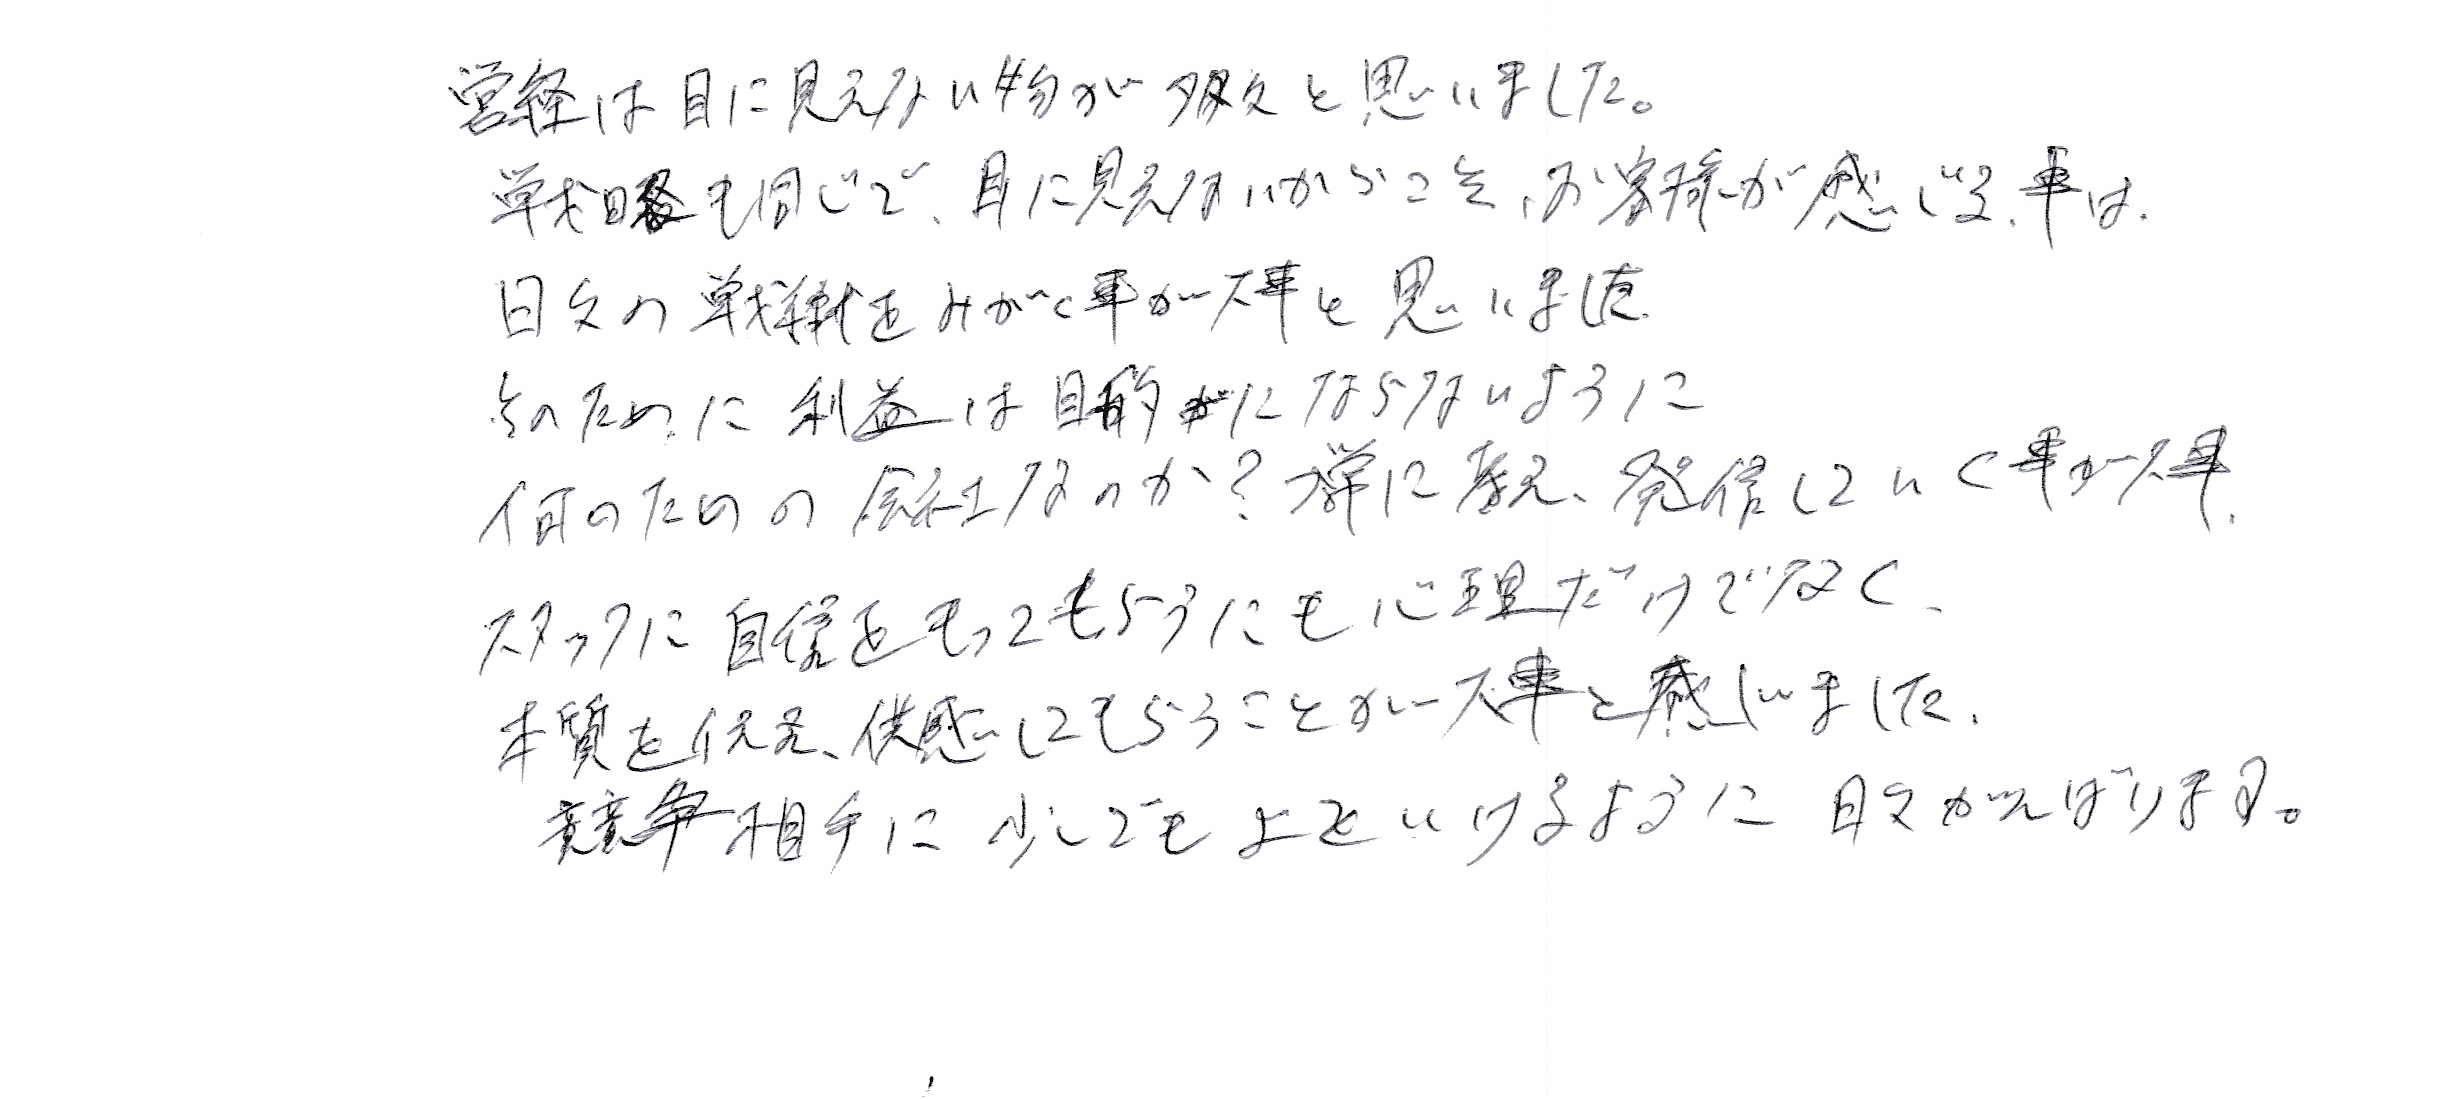 営経は目に見えない物が多々と思いました。
戦略も同じで、目に見えないからこそ、お客様が感じる、事は、
日々の戦術をみがく事が大事と思いました。
そのために利益は目的にならないように
何のための会社なのか？常に考え、発信していく事が大事、
スタッフに自信をもってもらうにも心理だけでなく、
本質を伝え、供感してもらうことが大事と感じました、
競争相手に少しでも上をいけるように日々がんばります。